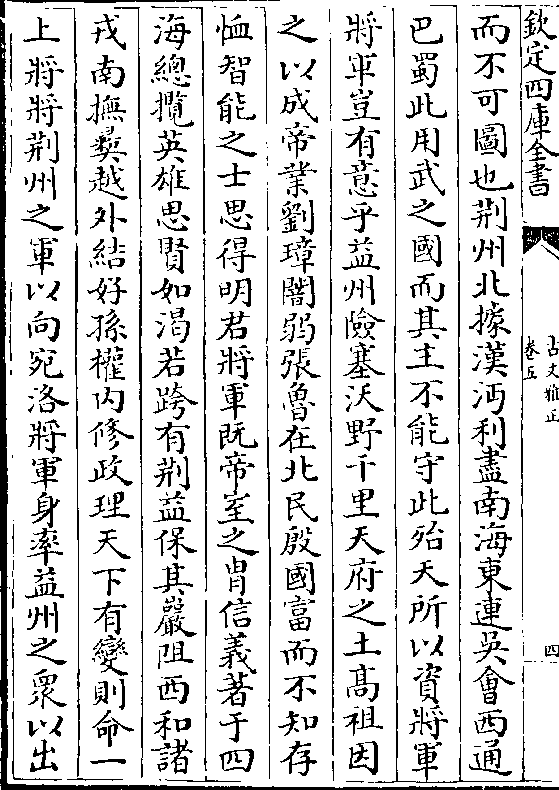 欽定四庫全書
古文雅正
卷五
四
而不可圖也荆州北據漢沔利盡南海東連吳會西通
巴蜀此用武之國而其主不能守此殆天所以資將軍
將軍豈有意乎益州險塞沃野千里天府之土髙祖因
之以成帝業劉璋闇弱張魯在北民殷國富而不知存
恤智能之士思得明君將軍既帝室之胄信義著于四
海總攬英雄思賢如渴若跨有荆益保其巖阻西和諸
戎南撫彛越外結好孫權内修政理天下有變則命一
上將將荆州之軍以向宛洛將軍身率益州之衆以出